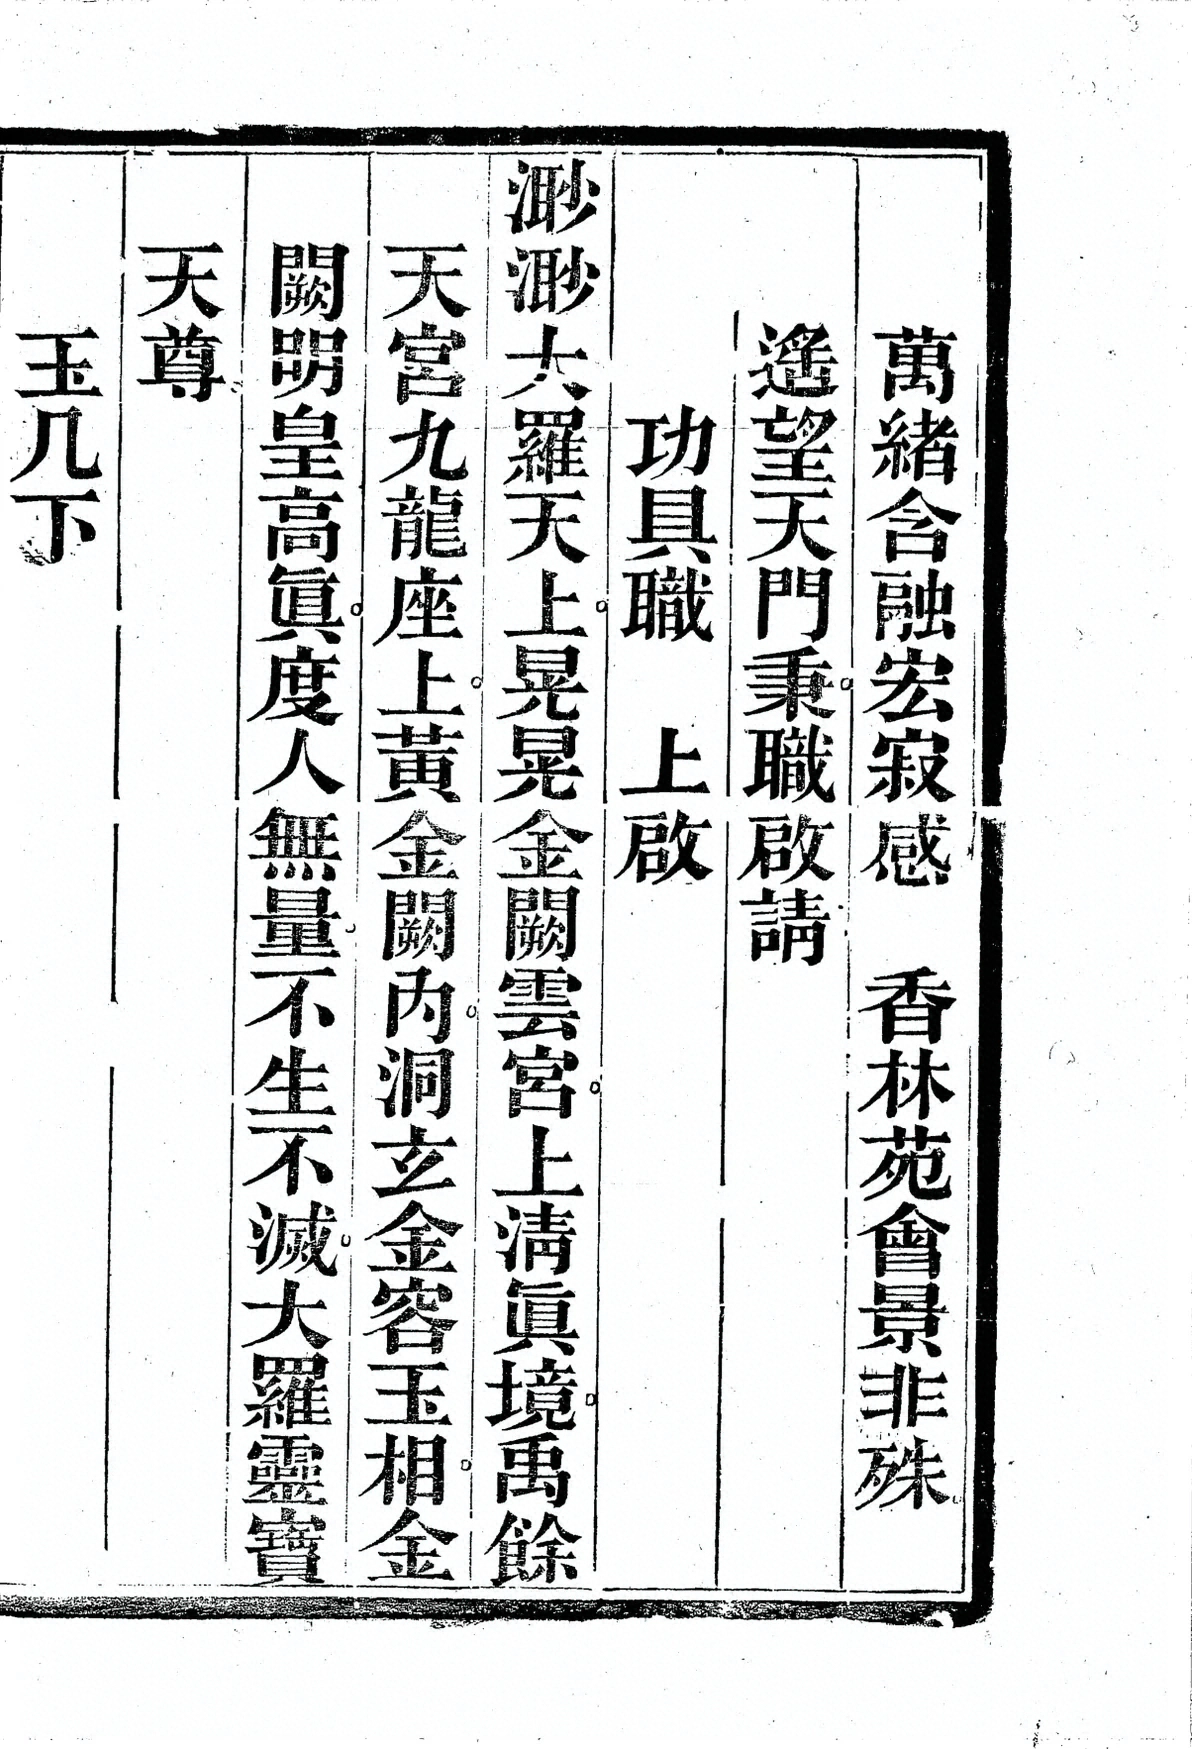 萬緒含融宏寂感　香林苑會景非殊
遙望天門秉職啟請
功具職　上啟
渺渺大羅天上晃晃金闕雲宮上淸眞境禹餘
天宮九龍座上黃金闕內洞玄金容玉相金
闕明皇高眞度人無量不生不滅大羅靈寶
天尊
玉几下